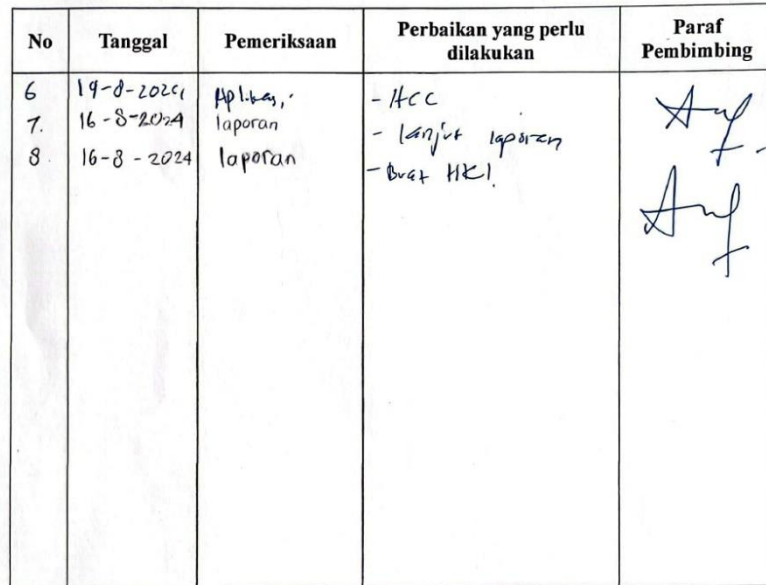 No Tanggal Pemeriksaan Perbaikan yang perlu dilakukan Paraf Pembimbing
6 Aplikasi - ACC
7. 16-8-2024 laporan - lanjut laporan
8. 16-8-2024 laporan - Buat HKI